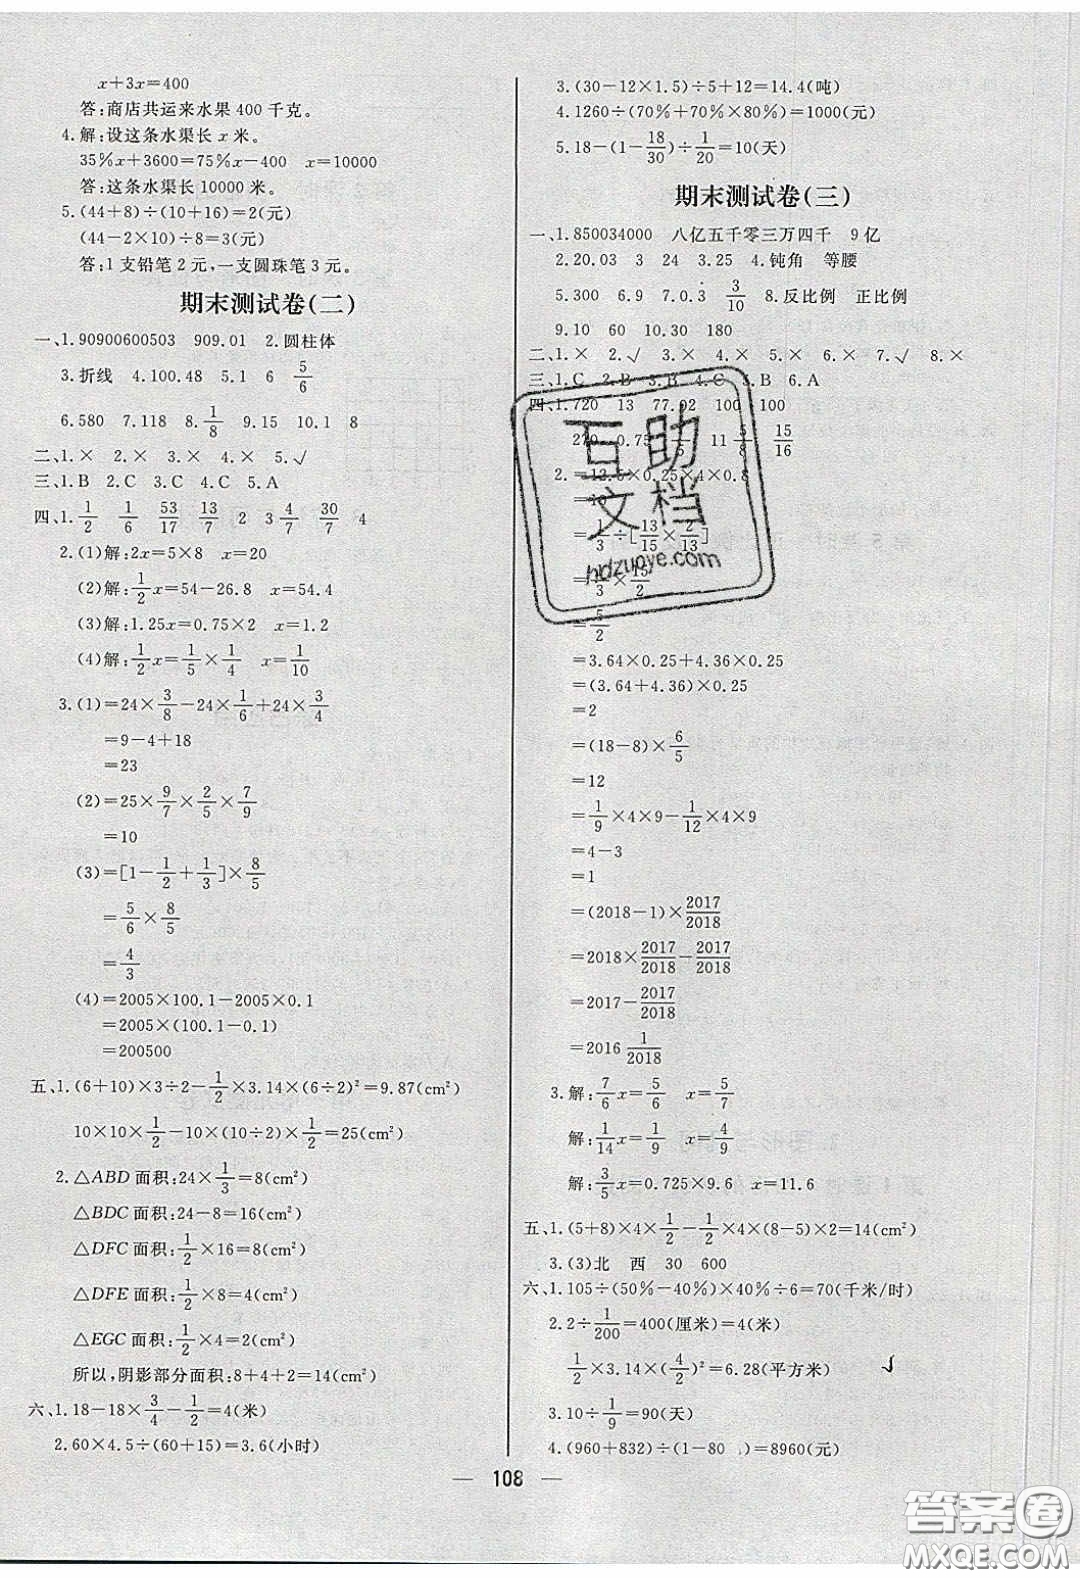 x+3x=400
答:商店共运来水果 400 千克。
4.解:设这条水渠长 x 米。
35%x+3600=75%x-400 x=10000
答:这条水渠长 10000 米。
5.(44+8)÷(10+16)=2(元)
(44-2×10)÷8=3(元)
答:1 支铅笔 2 元,一支圆珠笔 3 元。
期末测试卷(二)
一、1.90900600503 909.01 2.圆柱体
3.折线 4.100.48 5.1 6 5/6
6.580 7.118 8.1/8 9.15 10.1 8
二、1.× 2.× 3.× 4.× 5.√
三、1.B 2.C 3.C 4.C 5.A
四、1.1/2 1/6 53/17 13/7 2 3 4/7 30/7 4
2.(1)解:2x=5×8 x=20
(2)解:1/2x=54-26.8 x=54.4
(3)解:1.25x=0.75×2 x=1.2
(4)解:1/2x=1/5×1/4 x=1/10
3.(1)=24×3/8-24×1/6+24×3/4
=9-4+18
=23
(2)=25×9/7×2/5×7/9
=10
(3)=[1-1/2+1/3]×8/5
=5/6×8/5
=4/3
(4)=2005×100.1-2005×0.1
=2005×(100.1-0.1)
=200500
五、1.(6+10)×3÷2-1/2×3.14×(6÷2)²=9.87(cm²)
10×10×1/2-10×(10÷2)×1/2=25(cm²)
2.△ABD 面积:24×1/3=8(cm²)
△BDC 面积:24-8=16(cm²)
△DFC 面积:1/2×16=8(cm²)
△DFE 面积:1/2×8=4(cm²)
△EGC 面积:1/2×4=2(cm²)
所以,阴影部分面积:8+4+2=14(cm²)
六、1.18-18×3/4-1/2=4(米)
2.60×4.5÷(60+15)=3.6(小时)
3.(30-12×1.5)÷5+12=14.4(吨)
4.1260÷(70%+70%×80%)=1000(元)
5.18-(1-18/30)÷1/20=10(天)
期末测试卷(三)
一、1.850034000 八亿五千零三万四千 9 亿
2.20.03 3 24 3.25 4.钝角 等腰
5.300 6.9 7.0.3 3/10 8.反比例 正比例
9.10 60 10.30 180
二、1.× 2.√ 3.× 4.× 5.× 6.× 7.√ 8.×
三、1.C 2.B 3.B 4.C 5.B 6.A
四、1.720 13 77.92 100 100
270 0.75 11 5/8 15/16
2.=12.5×0.25×4×0.8
=10
=1/3÷[13/15×2/13]
=1/3×15/2
=5/2
=3.64×0.25+4.36×0.25
=(3.64+4.36)×0.25
=2
=(18-8)×6/5
=12
=1/9×4×9-1/12×4×9
=4-3
=1
=(2018-1)×2017/2018
=2018×2017/2018-2017/2018
=2017-2017/2018
=2016 1/2018
3.解:7/6x=5/6 x=5/7
解:1/14x=1/9 x=4/9
解:3/5x=0.725×9.6 x=11.6
五、1.(5+8)×4×1/2-1/2×4×(8-5)×2=14(cm²)
3.(3)北 西 30 600
六、1.105÷(50%-40%)×40%÷6=70(千米/时)
2.2÷1/200=400(厘米)=4(米)
1/2×3.14×(4/2)²=6.28(平方米)
3.10÷1/9=90(天)
4.(960+832)÷(1-80 )=8960(元)
108
互助文档
hdzuoye.com
答案卷
MXQE.COM